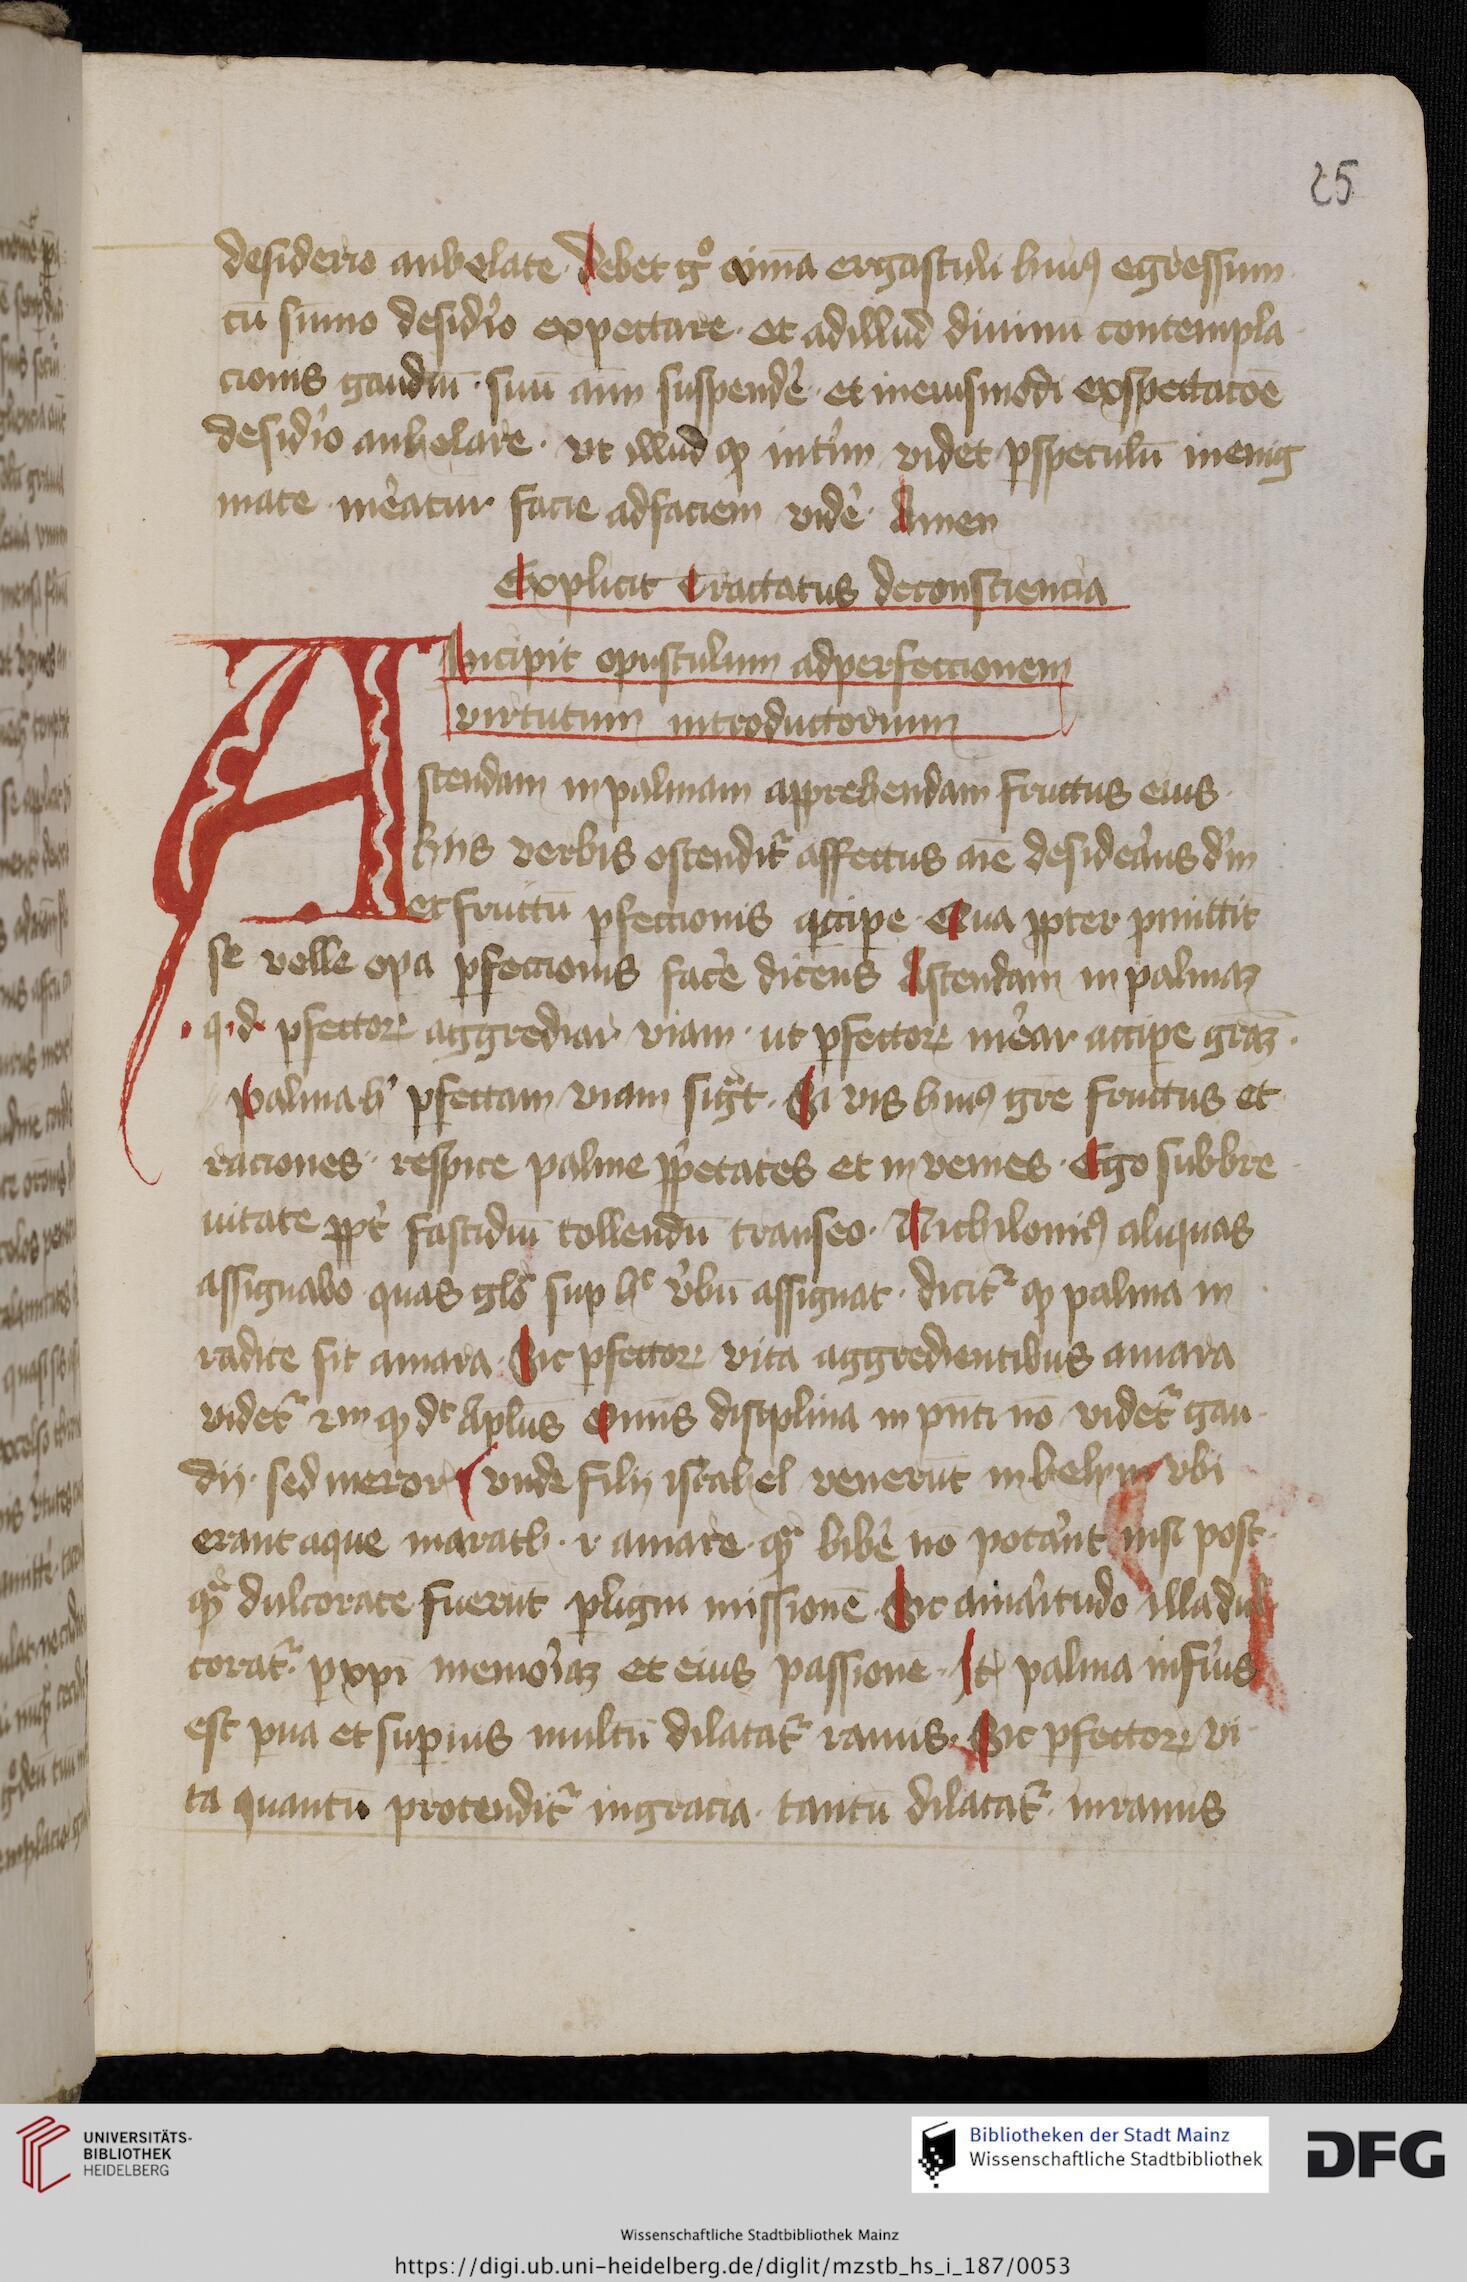 25
desiderio anhelare. Debet gͦ aīma ergastuli huiꝰ egressum
cū sūmo desid'io expectare. et adillud diuinū contempla
cionis gaudiū. suū aīm suspend'e. et ineiusmodi exspectacōe
desid'io anhelare. vt illud ꝙ int'im videt ꝑspeculū inenig
mate. m'eatur facie adfaciem vid'e. Amen
Explicit Tractatus deconsciencia
Incipit opusculum adperfeccionem
virtutum introductorium
Ascendam inpalmam apprehendam fructus eius.
hijs verbis ostendit᷑ affectus aīe desid'ans d'm
et fructū ꝑfeccionis accipe. Qua ꝓpter ꝓmittit
se velle opa ꝑfeccionis fac'e dicens Ascendam in palmaꝫ
.q.d. ꝑfectoꝝ aggrediar viam. ut ꝑfectoꝝ m'ear accipe graꝫ.
Palma h' ꝑfectam viam sig̅t. Si vis huiꝰ gr̅e fructus et
raciones. respice palme ꝓp'etates et in venies. Ego subbre
uitate ꝓpt' fastidiū tollendū transeo. Nichilomiꝰ aliquas
assignabo quas glo᷑ sup hͨ v'bū assignat. dicit᷑ ꝙ palma in
radice sit amara. Sic ꝑfectoꝝ vita aggredientibus amara
videt᷑ ꝙ dͭ Apl̅us Omīs disciplina in pn̄ti nō videt᷑ gau
dij. sed meror vnde filij israhel venerūt inhelym vbi
erant aque marath. .i. amare. q᷑ bib'e nō pot'ant nisi post
q᷑ dulcorate fuerūt ꝑligni missionē. Sic amaritudo illa dul
corat᷑. ꝑxp̄i memoriaꝫ et eius passione. It̄ palma inf'ius
est ꝑua et superius multū dilatat᷑ ramis. Sic ꝑfectoꝝ vi
ta quantū protendit᷑ ingracia. tantū dilatat᷑. inramis
UNIVERSITÄTS-
BIBLIOTHEK
HEIDELBERG
Bibliotheken der Stadt Mainz
Wissenschaftliche Stadtbibliothek
DFG
Wissenschaftliche Stadtbibliothek Mainz
https://digi.ub.uni-heidelberg.de/diglit/mzstb_hs_i_187/0053